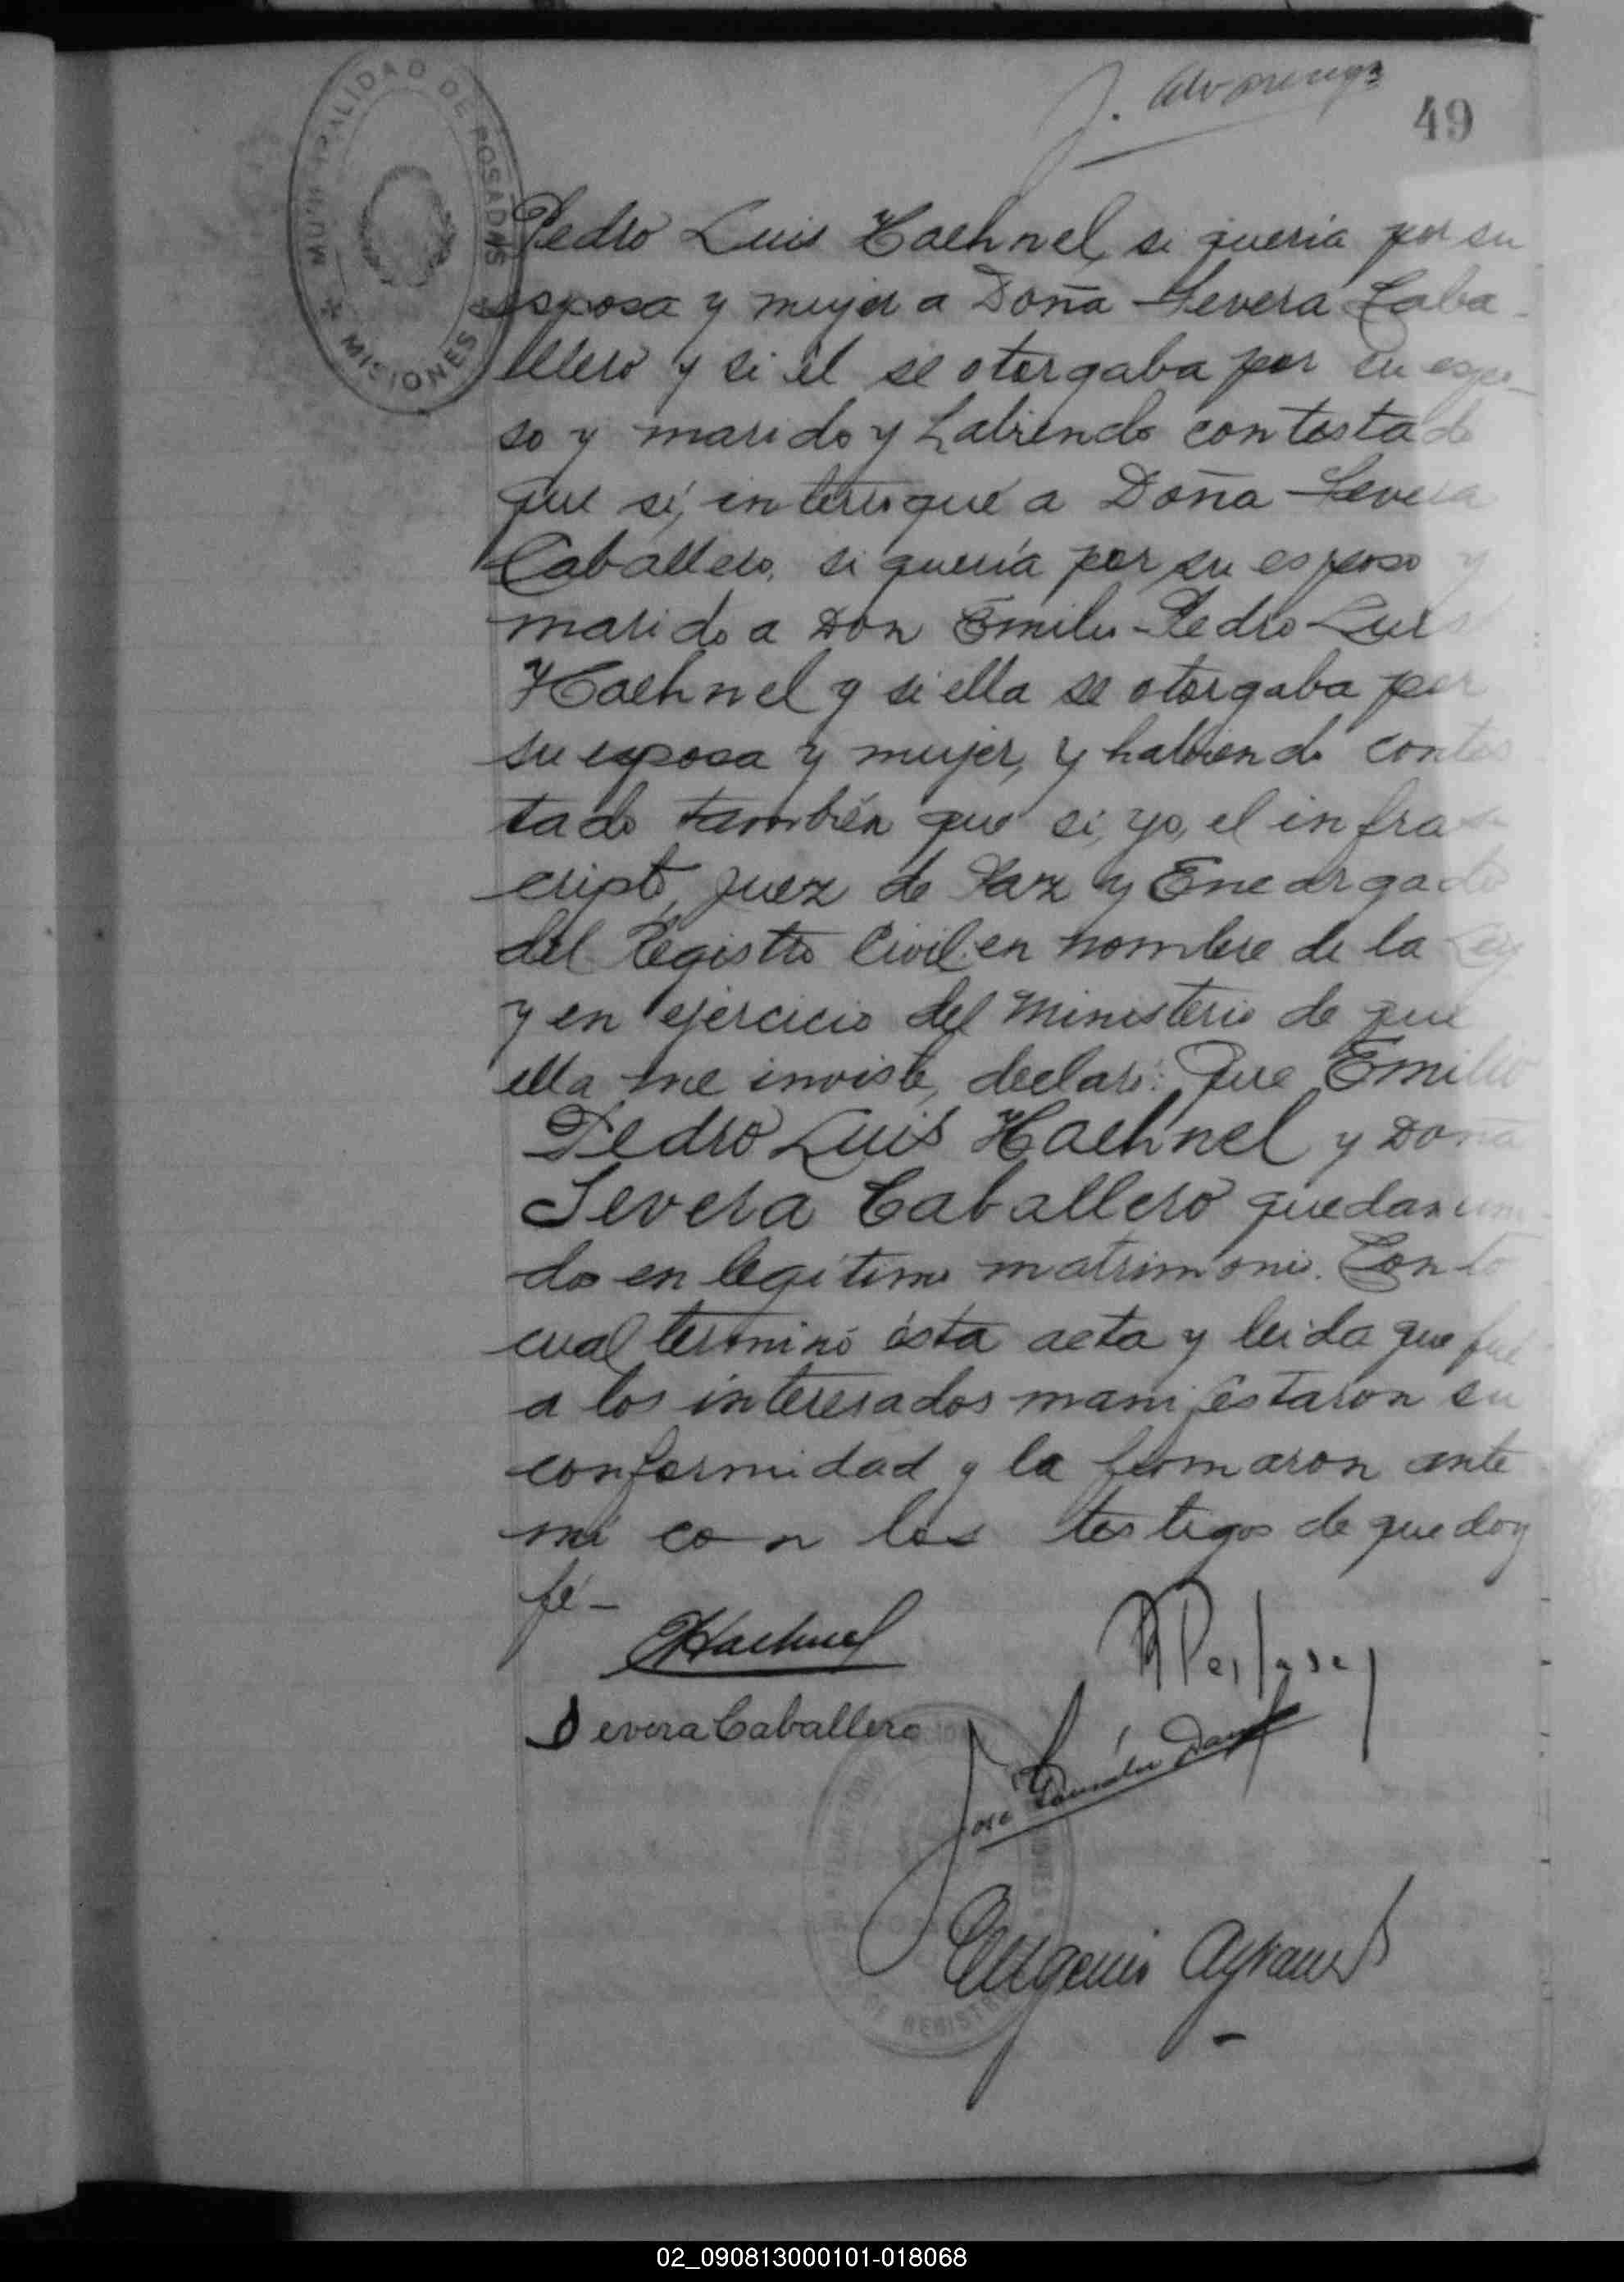 MUNICIPALIDAD DE POSADAS
MISIONES
49
Pedro Luis Haehnel, si quería por su
esposa y mujer a Doña Severa Caba-
llero y si él se otorgaba por su espo-
so y marido y habiendo contestado
que sí, interrogué a Doña Severa
Caballero, si quería por su esposo y
marido a Don Emilio Pedro Luis
Haehnel y si ella se otorgaba por
su esposa y mujer, y habiendo contes
tado también que si, yo, el infras
cripto, juez de Paz y Encargado
del Registro Civil en nombre de la Ley
y en ejercicio del Ministerio de que
ella me inviste, declaré: Que Emilio
Pedro Luis Haehnel y Doña
Severa Caballero quedan uni
dos en legítimo matrimonio. Con lo
cual terminó ésta acta y leida que fué
a los interesados manifestaron su
conformidad y la firmaron ante
mí con los testigos de que doy
fé-
EHaehnel
Severa Caballero
José González
Eugenio
REGISTRO
02_090813000101-018068